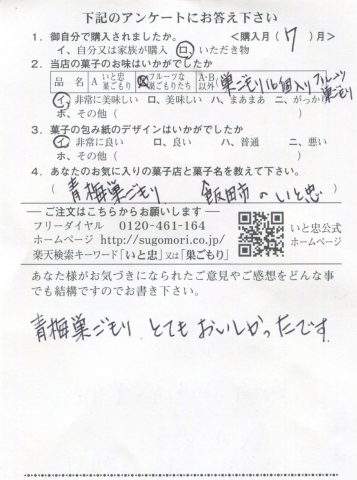 下記のアンケートにお答え下さい
1．御自分で購入されましたか。 <購入月（ 7 ）月>
イ、自分又は家族が購入 ロ、いただき物
2．当店の菓子のお味はいかがでしたか
品 名 A いと忠 巣ごもり B フルーツな 巣ごもりたち A・B 以外 巣ごもり16個入り フルーツ 巣ごもり
イ、非常に美味しい ロ、美味しい ハ、まあまあ ニ、がっか
ホ、その他（ ）
3．菓子の包み紙のデザインはいかがでしたか
イ、非常に良い ロ、良い ハ、普通 ニ、悪い
ホ、その他（ ）
4．あなたのお気に入りの菓子店と菓子名を教えて下さい。
（ 青梅巣ごもり 飯田市 の いと忠 ）
― ご注文はこちらからお願いします ―
フリーダイヤル 0120-461-164
ホームページ http://sugomori.co.jp/
楽天検索キーワード「いと忠」又は「巣ごもり」
いと忠公式
ホームページ
あなた様がお気づきになられたご意見やご感想をどんな事
でも結構ですのでお書き下さい。
青梅巣ごもり、とても おいしかったです